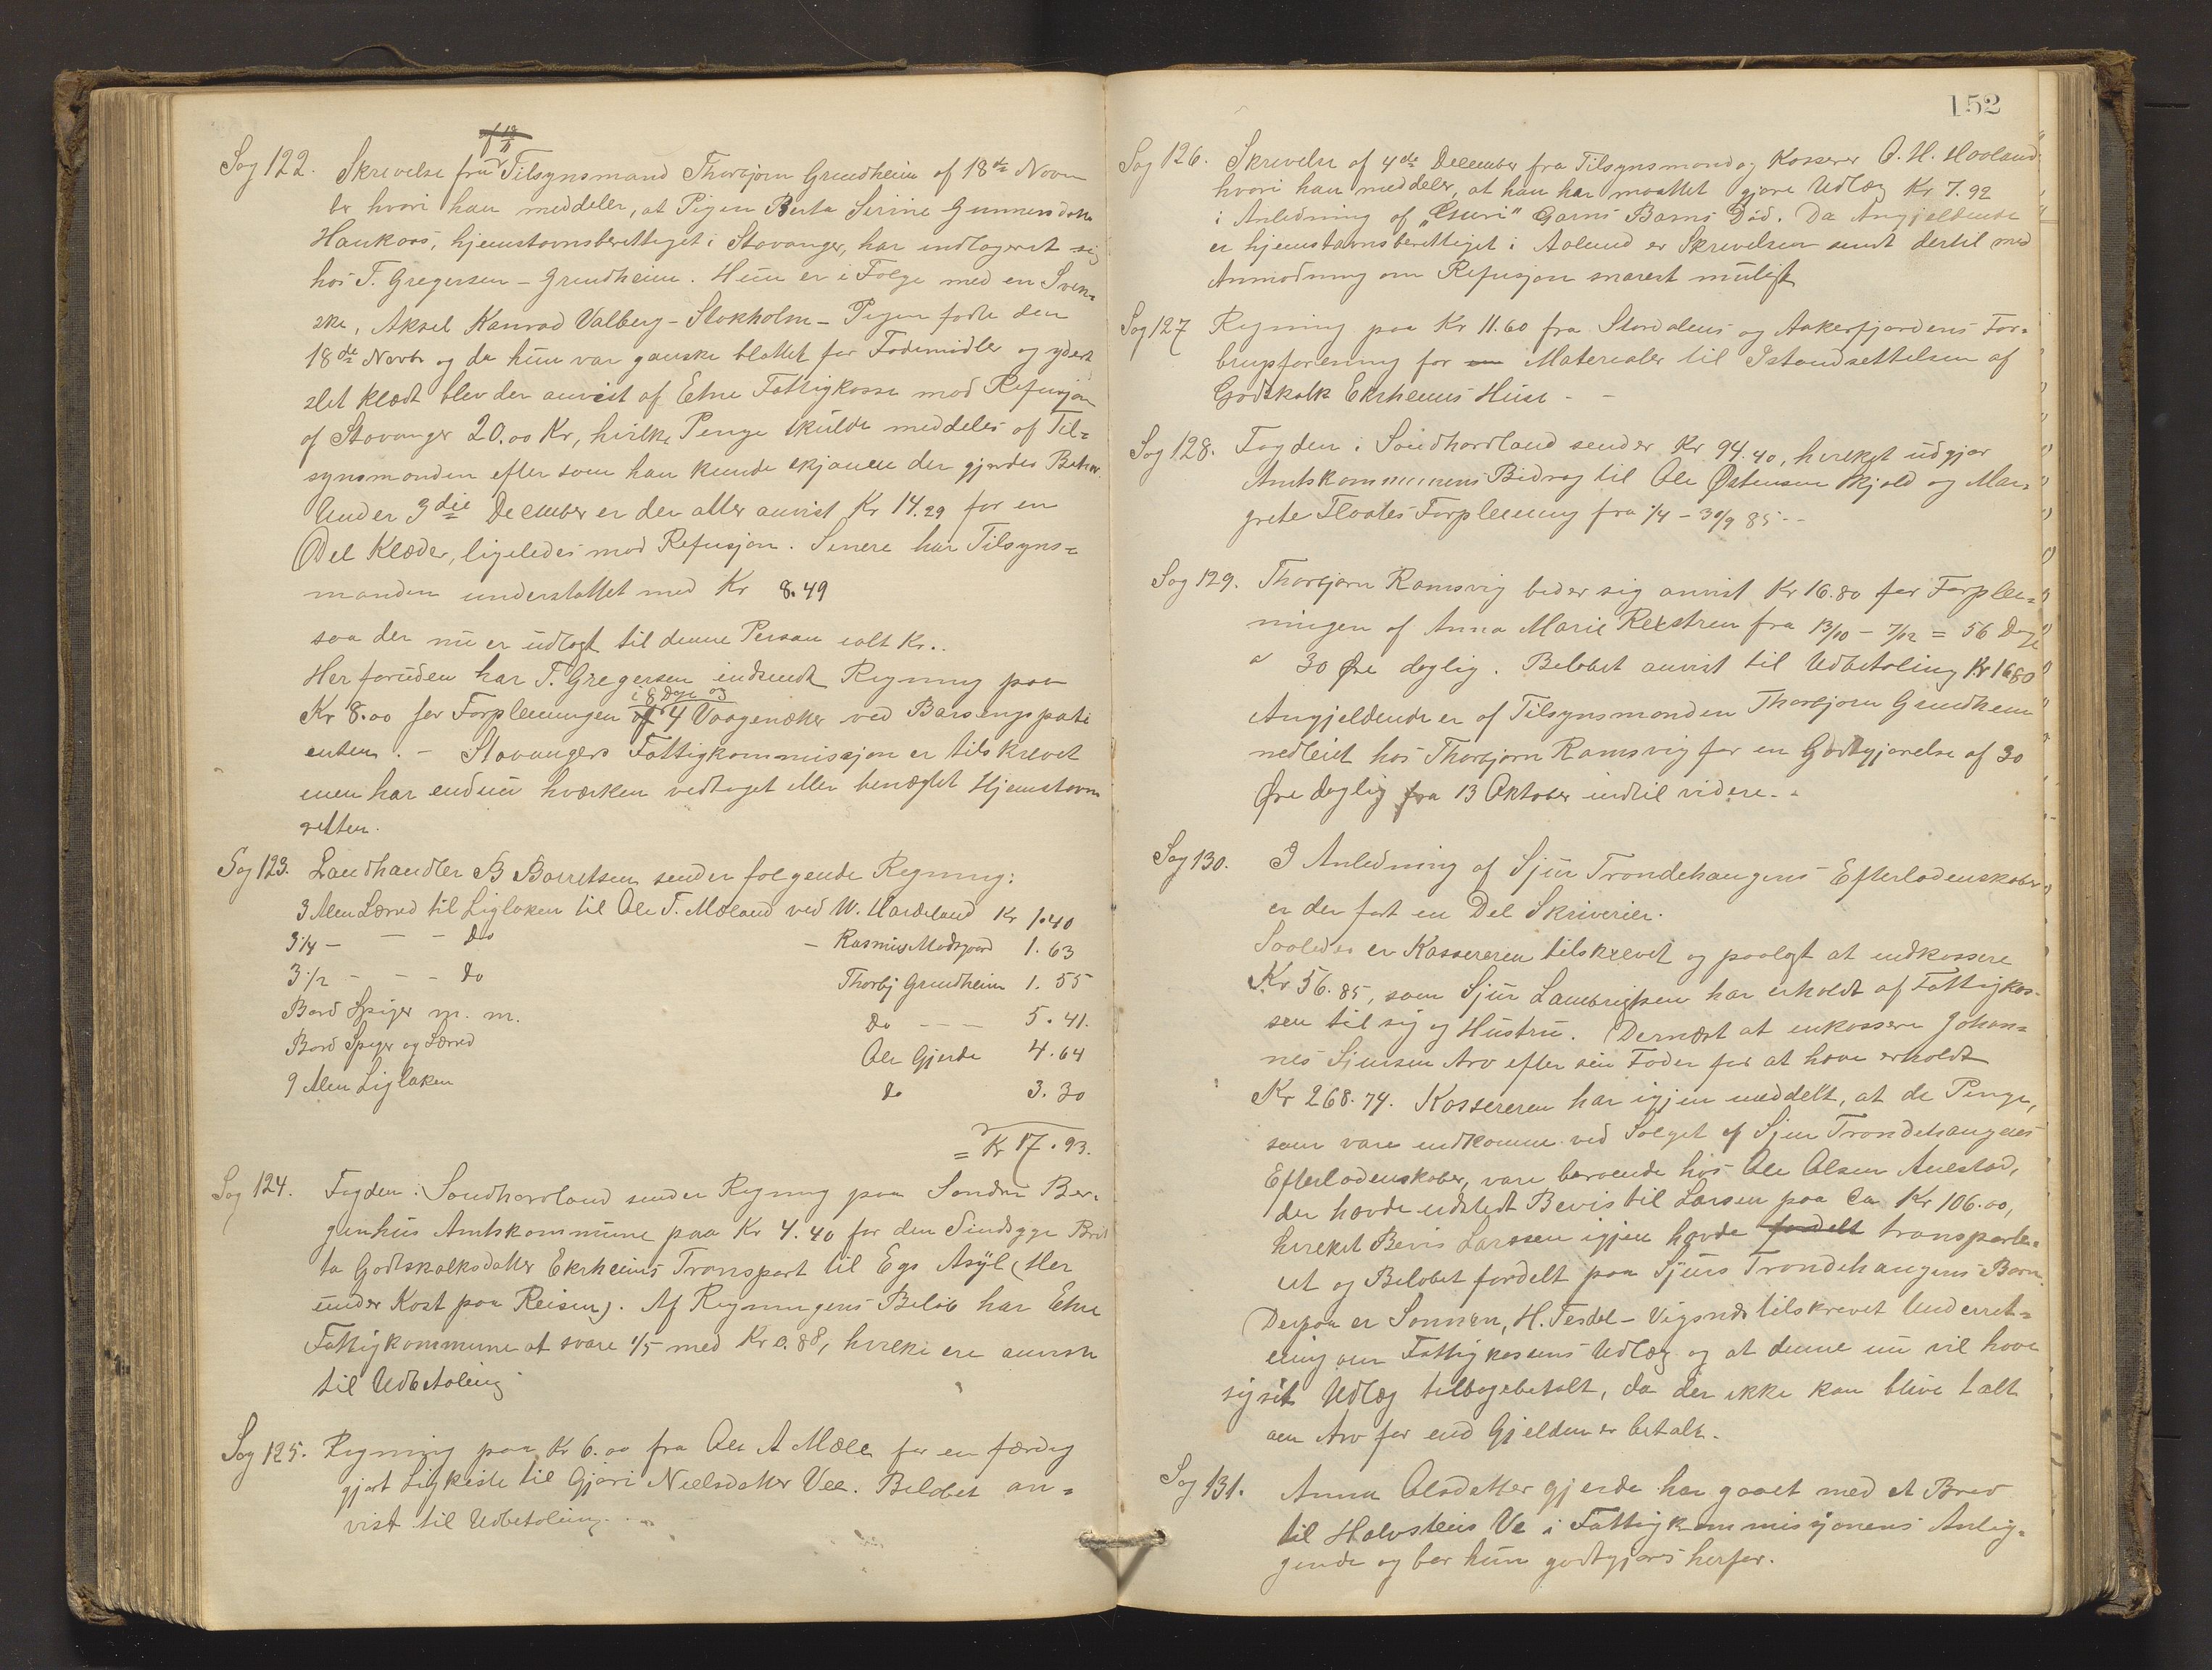 Sag 122. Skrivelse fra Tilsynsmand Thorbjørn Grindheim af 18de Novem
ber hvori han meddeler, at Pigen Berta Serine Gunnersdatter
Haukaas, hjemstavnsberettiget i Stavanger, har indlogeret sig
hos T. Gregersen - Grindheim. Hun er i Følge med en Sven=
ske, Aksel Kanrad Valberg - Stokholm - Pigen fødte den
18de Novbr og da hun var ganske blottet for Fødemidler og yderst
slet klædt blev der anvist af Etne Fattigkasse mod Refusjon
af Stavanger 20.00 Kr, hvilke Penge skulde meddeles af Til=
synsmanden efter som han kunde skjønne der gjordes Behov.
Under 3die December er der atter anvist Kr 14.29 for en
Del Klæder, ligeledes mod Refusjon. Senere har Tilsyns=
manden understøttet med Kr 8.49
saa der nu er udlagt til denne Person ialt Kr..
Herforuden har T. Gregersen indsendt Regning paa
i 8 Dage og
Kr 8.00 for Forpleiningen af 4 Vaagenætter ved Barsengspati
enten. - Stavangers Fattigkommissjon er tilskrevet
men har endnu hværken vedtaget eller benægtet Hjemstavns
retten.
Sag 123. Landhandler B Børretsen sender følgende Regning:
3 Alen Lærred til Liglaken til Ole T. Mæland ved W. Hardeland Kr 1.40
3 1/4 - - - do - Rasmus Madsgaard 1.63
3 1/2 - - - do Thorbj Grindheim 1.55
Bord Spiger m. m. do - - - 5.41.
Bord Spiger og Lærred Ole Gjerde 4.64
9 Alen Liglaken do 3.30
= Kr 17.93.
Sag 124. Fogden i Søndhordland sender Regning paa Søndre Ber=
genhus Amtskommune paa Kr 4.40 for den Sindsyge Brit
ta Godtskalksdatter Ekrheims Transport til Egs Asyl (Her
under Kost paa Reisen). Af Regningens Beløb har Etne
Fattigkommune at svare 1/5 med Kr 0.88, hvilke ere anviste
til Udbetaling
Sag 125. Regning paa Kr 6.00 fra Ole A Mæle for en færdig
gjort Ligkiste til Gjøri Nielsdatter Vee. Beløbet an=
vist til Udbetaling.
152
Sag 126. Skrivelse af 4de December fra Tilsynsmand og Kasserer O. H. Haaland
hvori han meddeler, at han har maattet gjøre Udlæg Kr 7.92
i Anledning af "Guri" Garns Barns Død. Da Angjeldende
er hjemstavnsberettiget i Aalund er Skrivelsen sendt dertil med
Anmodning om Refusjon snarest muligt
Sag 127 Regning paa Kr 11.60 fra Stordalens og Aakerfjordens For=
brugsforening for Materialer til Istandsettelsen af
Godtskalk Ekrheims Huse - -
Sag 128. Fogden i Søndhordland sender Kr 94.40, hvilket udgjør
Amtskommunens Bidrag til Ole Østensen Skjold og Mar=
grete Flaates Forpleining fra 1/4 - 30/9 85 - -
Sag 129. Thorbjørn Ramsvig beder sig anvist Kr 16.80 for Forplei=
ningen af Anna Marie Rexstren fra 13/10 - 7/12 = 56 Dage
a 30 Øre daglig. Beløbet anvist til Udbetaling Kr 16.80
Angjeldende er af Tilsynsmanden Thorbjørn Grindheim
nedleiet hos Thorbjørn Ramsvig for en Godtgjørelse af 30
Øre daglig fra 13 Oktober indtil videre. -
Sag 130. I Anledning af Sjur Trondehaugens Efterladenskaber
er der ført en Del Skriverier.
Saaledes er Kassereren tilskrevet og paalagt at indkassere
Kr 56.85, som Sjur Lambrigtsen har erholdt af Fattigkas=
sen til sig og Hustru. Dernæst at inkassere Johan=
nes Sjursen Arv efter sin Fader for at have erholdt
Kr 268.74. Kassereren har igjen meddelt, at de Penge,
som vare indkomne ved Salget af Sjur Trondehaugens
Efterladenskaber, vare beroende hos Ole Olsen Aulestad,
der havde udstedt Bevis til Larsen paa Ca Kr 106.00,
hvilket Bevis Larssen igjen havde fordelt transporte=
ret og Beløbet fordelt paa Sjurs Trondehaugens Børn.
Derpaa er Sønnen, H. Tesdal - Vigsnæs tilskrevet Underret=
ning om Fattigkassens Udlæg og at denne nu vil have
sig sit Udlæg tilbagebetalt, da der ikke kan blive talt
om Arv før end Gjelden er betalt.
Sag 131. Anna Olsdatter Gjerde har gaaet med et Brev
til Halvsteins Ve i Fattigkommissjonens Anlig=
gende og bør hun godtgjøres herfor.